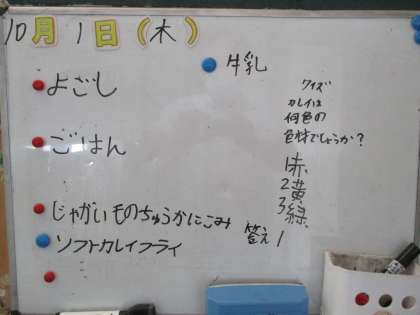 10月1日(木)
よごし
ごはん
じゃがいものちゅうかにこみ
ソフトカレイフライ
牛乳
クイズ
カレイは
何色の
色材でしょうか?
1赤
2黄
3緑
答え 1